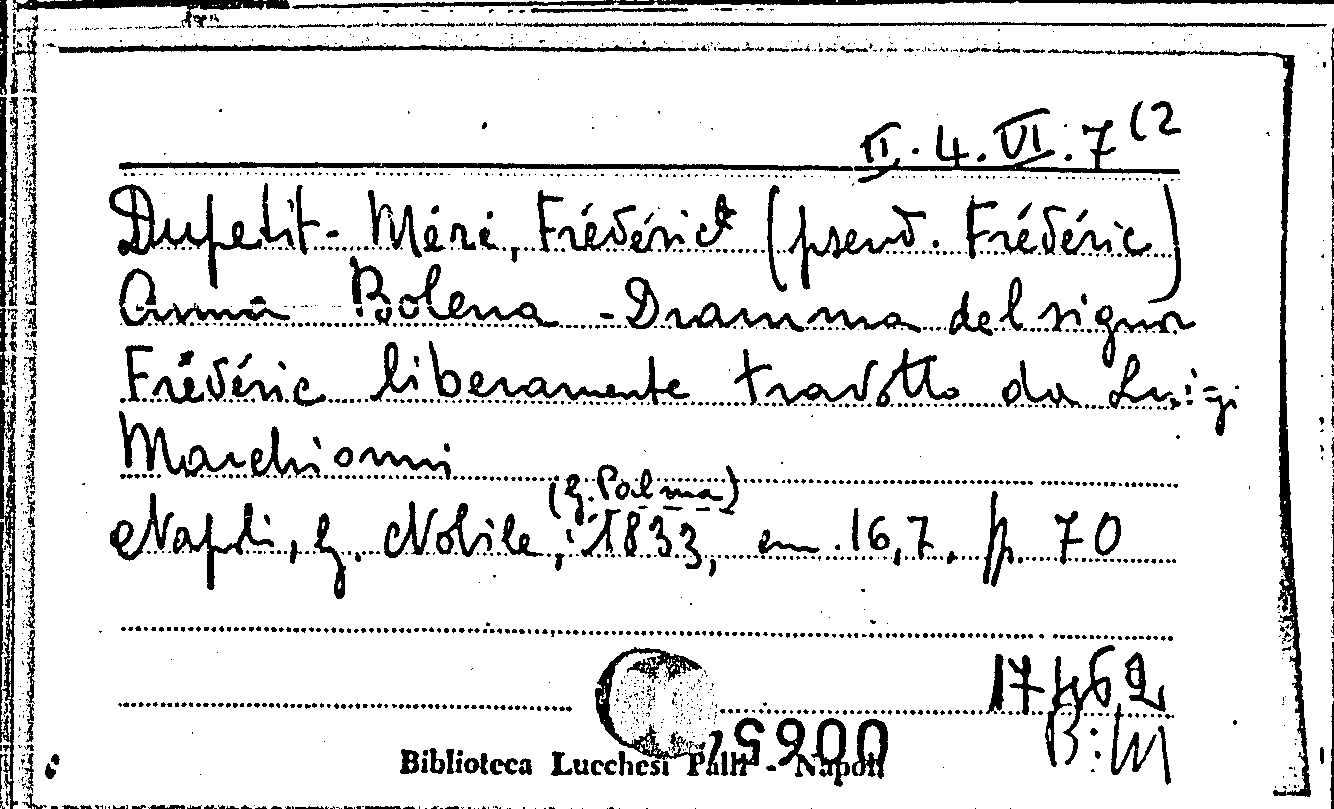 II. 4. VI. 7 (2
Dupetit-Méré, Frédérick (pseud. Frédéric)
Anna Bolena - Dramma del signor
Frédéric liberamente tradotto da Luigi
Marchionni
(G. Palma)
Napoli, G. Nobile, 1833, cm. 16,7. p. 70
17462
B: M
Biblioteca Lucchesi Palli - Napoli